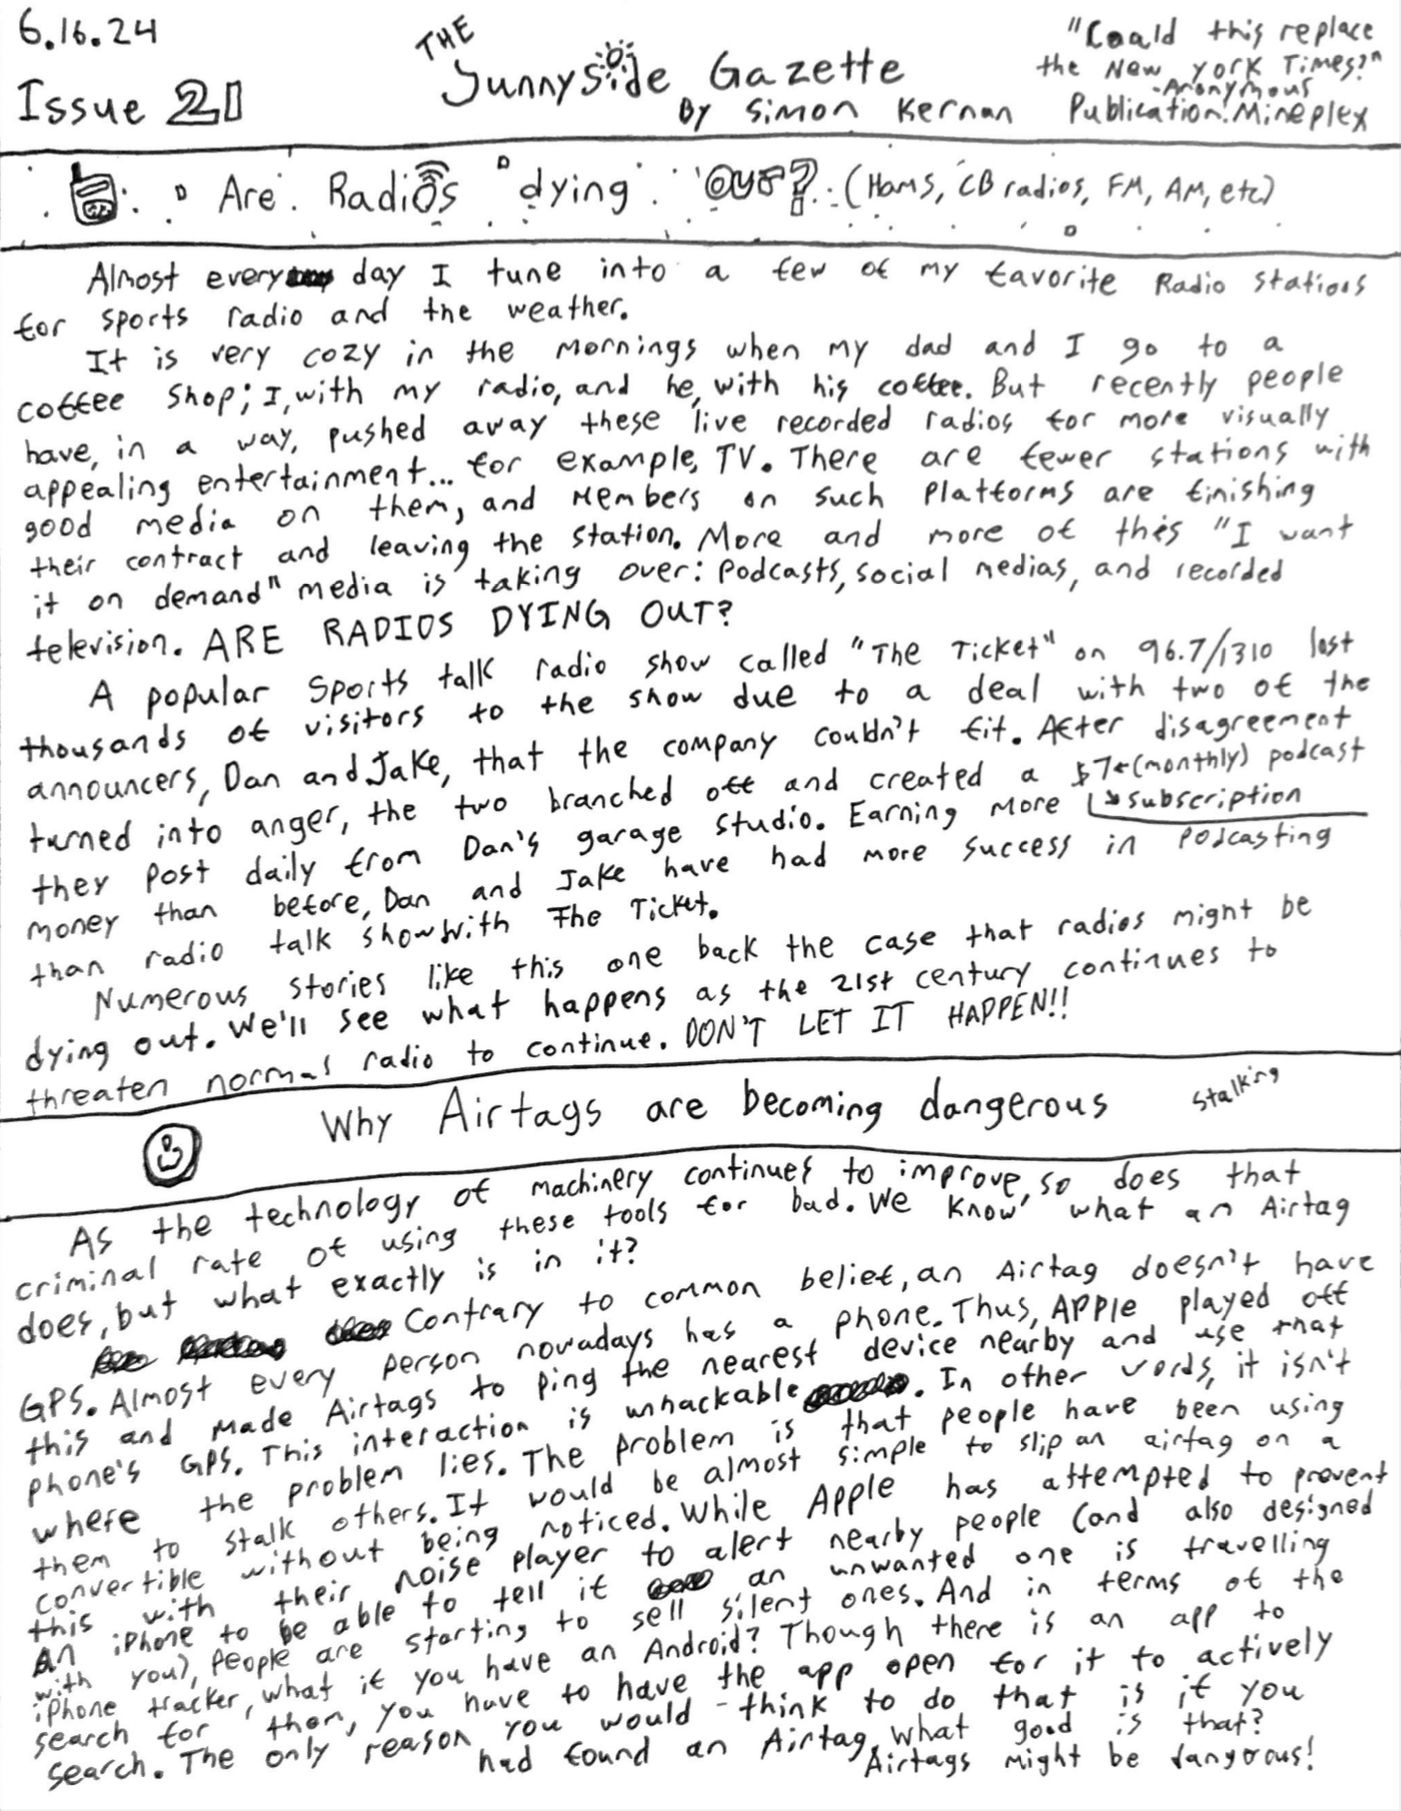 6.16.24
Issue 21
THE
Sunnyside Gazette
By Simon Kernan
"Could this replace
the New York Times?"
-Anonymous
Publication: Mineplex
Are Radios dying out? (Hams, CB radios, FM, AM, etc)
Almost every day I tune into a few of my favorite Radio stations
for sports radio and the weather.
It is very cozy in the mornings when my dad and I go to a
coffee shop; I, with my radio, and he, with his coffee. But recently people
have, in a way, pushed away these live recorded radios for more visually
appealing entertainment... for example, TV. There are fewer stations with
good media on them, and members on such platforms are finishing
their contract and leaving the station. More and more of this "I want
it on demand" media is taking over: Podcasts, social medias, and recorded
television. ARE RADIOS DYING OUT?
A popular sports talk radio show called "The Ticket" on 96.7/1310 lost
thousands of visitors to the show due to a deal with two of the
announcers, Dan and Jake, that the company couldn't fit. After disagreement
turned into anger, the two branched off and created a $7←(monthly) podcast
↳subscription
they post daily from Dan's garage studio. Earning more
money than before, Dan and Jake have had more success in podcasting
than radio talk show with The Ticket.
Numerous stories like this one back the case that radios might be
dying out. We'll see what happens as the 21st century continues to
threaten normal radio to continue. DON'T LET IT HAPPEN!!
Why Airtags are becoming dangerous
stalking
As the technology of machinery continues to improve, so does that
criminal rate of using these tools for bad. We know what an Airtag
does, but what exactly is in it?
Contrary to common belief, an Airtag doesn't have
GPS. Almost every person nowadays has a phone. Thus, Apple played off
this and made Airtags to ping the nearest device nearby and use that
phone's GPS. This interaction is unhackable. In other words, it isn't
where the problem lies. The problem is that people have been using
them to stalk others. It would be almost simple to slip an airtag on a
convertible without being noticed. While Apple has attempted to prevent
this with their noise player to alert nearby people (and also designed
an iPhone to be able to tell if an unwanted one is travelling
with you), people are starting to sell silent ones. And in terms of the
iPhone tracker, what if you have an Android? Though there is an app to
search for them, you have to have the app open for it to actively
search. The only reason you would think to do that is if you
had found an Airtag, what good is that?
Airtags might be dangrous!